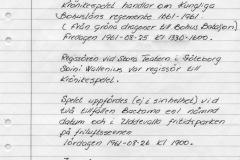 Krönikespelet handlar om Kungliga
Bohusläns regemente 1661-1961
(från gröna dragoner till Bohus Bataljon)
Fredagen 1961-08-25 kl 1330-1600.
Regissören vid Stora Teatern i Göteborg
Soini Wallenius var regissör till
Krönikespelet.
Spelet uppfördes (ej i sin helhet) vid
två tillfällen Bastarna enl nämnd
datum och i Uddevalla fritidsparken
på friluftsscenen
lördagen 1961-08-26 kl 1900.